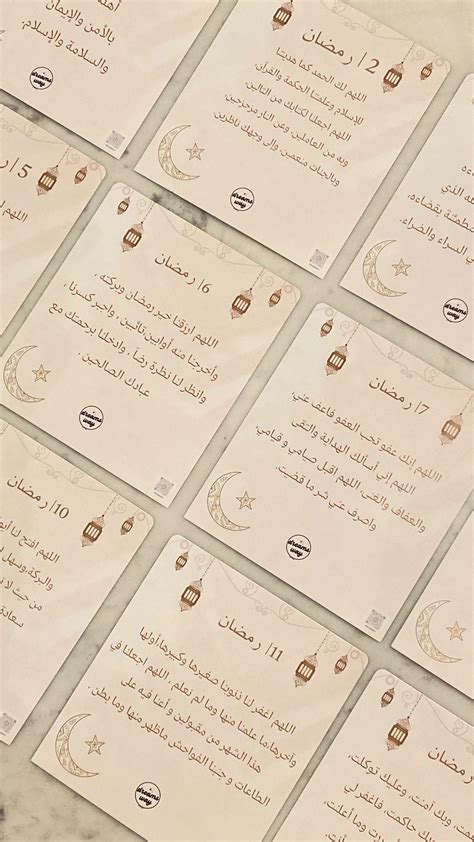 أهلّه
بالأمن والإيمان
والسلامة والإسلام.
dreams way
2 | رمضان
اللهم لك الحمد كما هديتنا
للإسلام وعلمتنا الحكمة والقرآن،
اللهم اجعلنا لكتابك من التالين،
وبه من العاملين، وعن النار مزحزحين،
وبالجنات منعمين، وإلى وجهك ناظرين.
dreams way
الذي
بقضاءه،
السراء والضراء.
dreams way
5 | ر
اللهم
6 | رمضان
اللهم ارزقنا خير رمضان وبركته ،
وأخرجنا منه أوابين تائبين ، واجبر كسرنا ،
وانظر لنا نظرة رضا ، وادخلنا برحمتك مع
عبادك الصالحين .
dreams way
7 | رمضان
االلهم إنك عفو تحب العفو فاعف عني،
اللهم إني أسألك الهداية والتقى
والعفاف والغنى، اللهم اقبل صيامي و قيامي،
واصرف عني شر ما قضيت.
dreams way
10 | رمضان
اللهم افتح لنا أبو
والبركة،وسهل
من حيث لا ن
سعادة
11 | رمضان
اللهم اغفر لنا ذنوبنا صغيرها وكبيرها أولها
وآخرها،ما علمنا منها وما لم نعلم ، اللهم اجعلنا في
هذا الشهر من مقبولين و أعنا فيه على
الطاعات و جنبنا الفواحش ماظهر منها وما بطن.
dreams way
رمضان
وبك آمنت، وعليك توكلت،
وبك حاكمت، فاغفر لي
وما أعلنت،